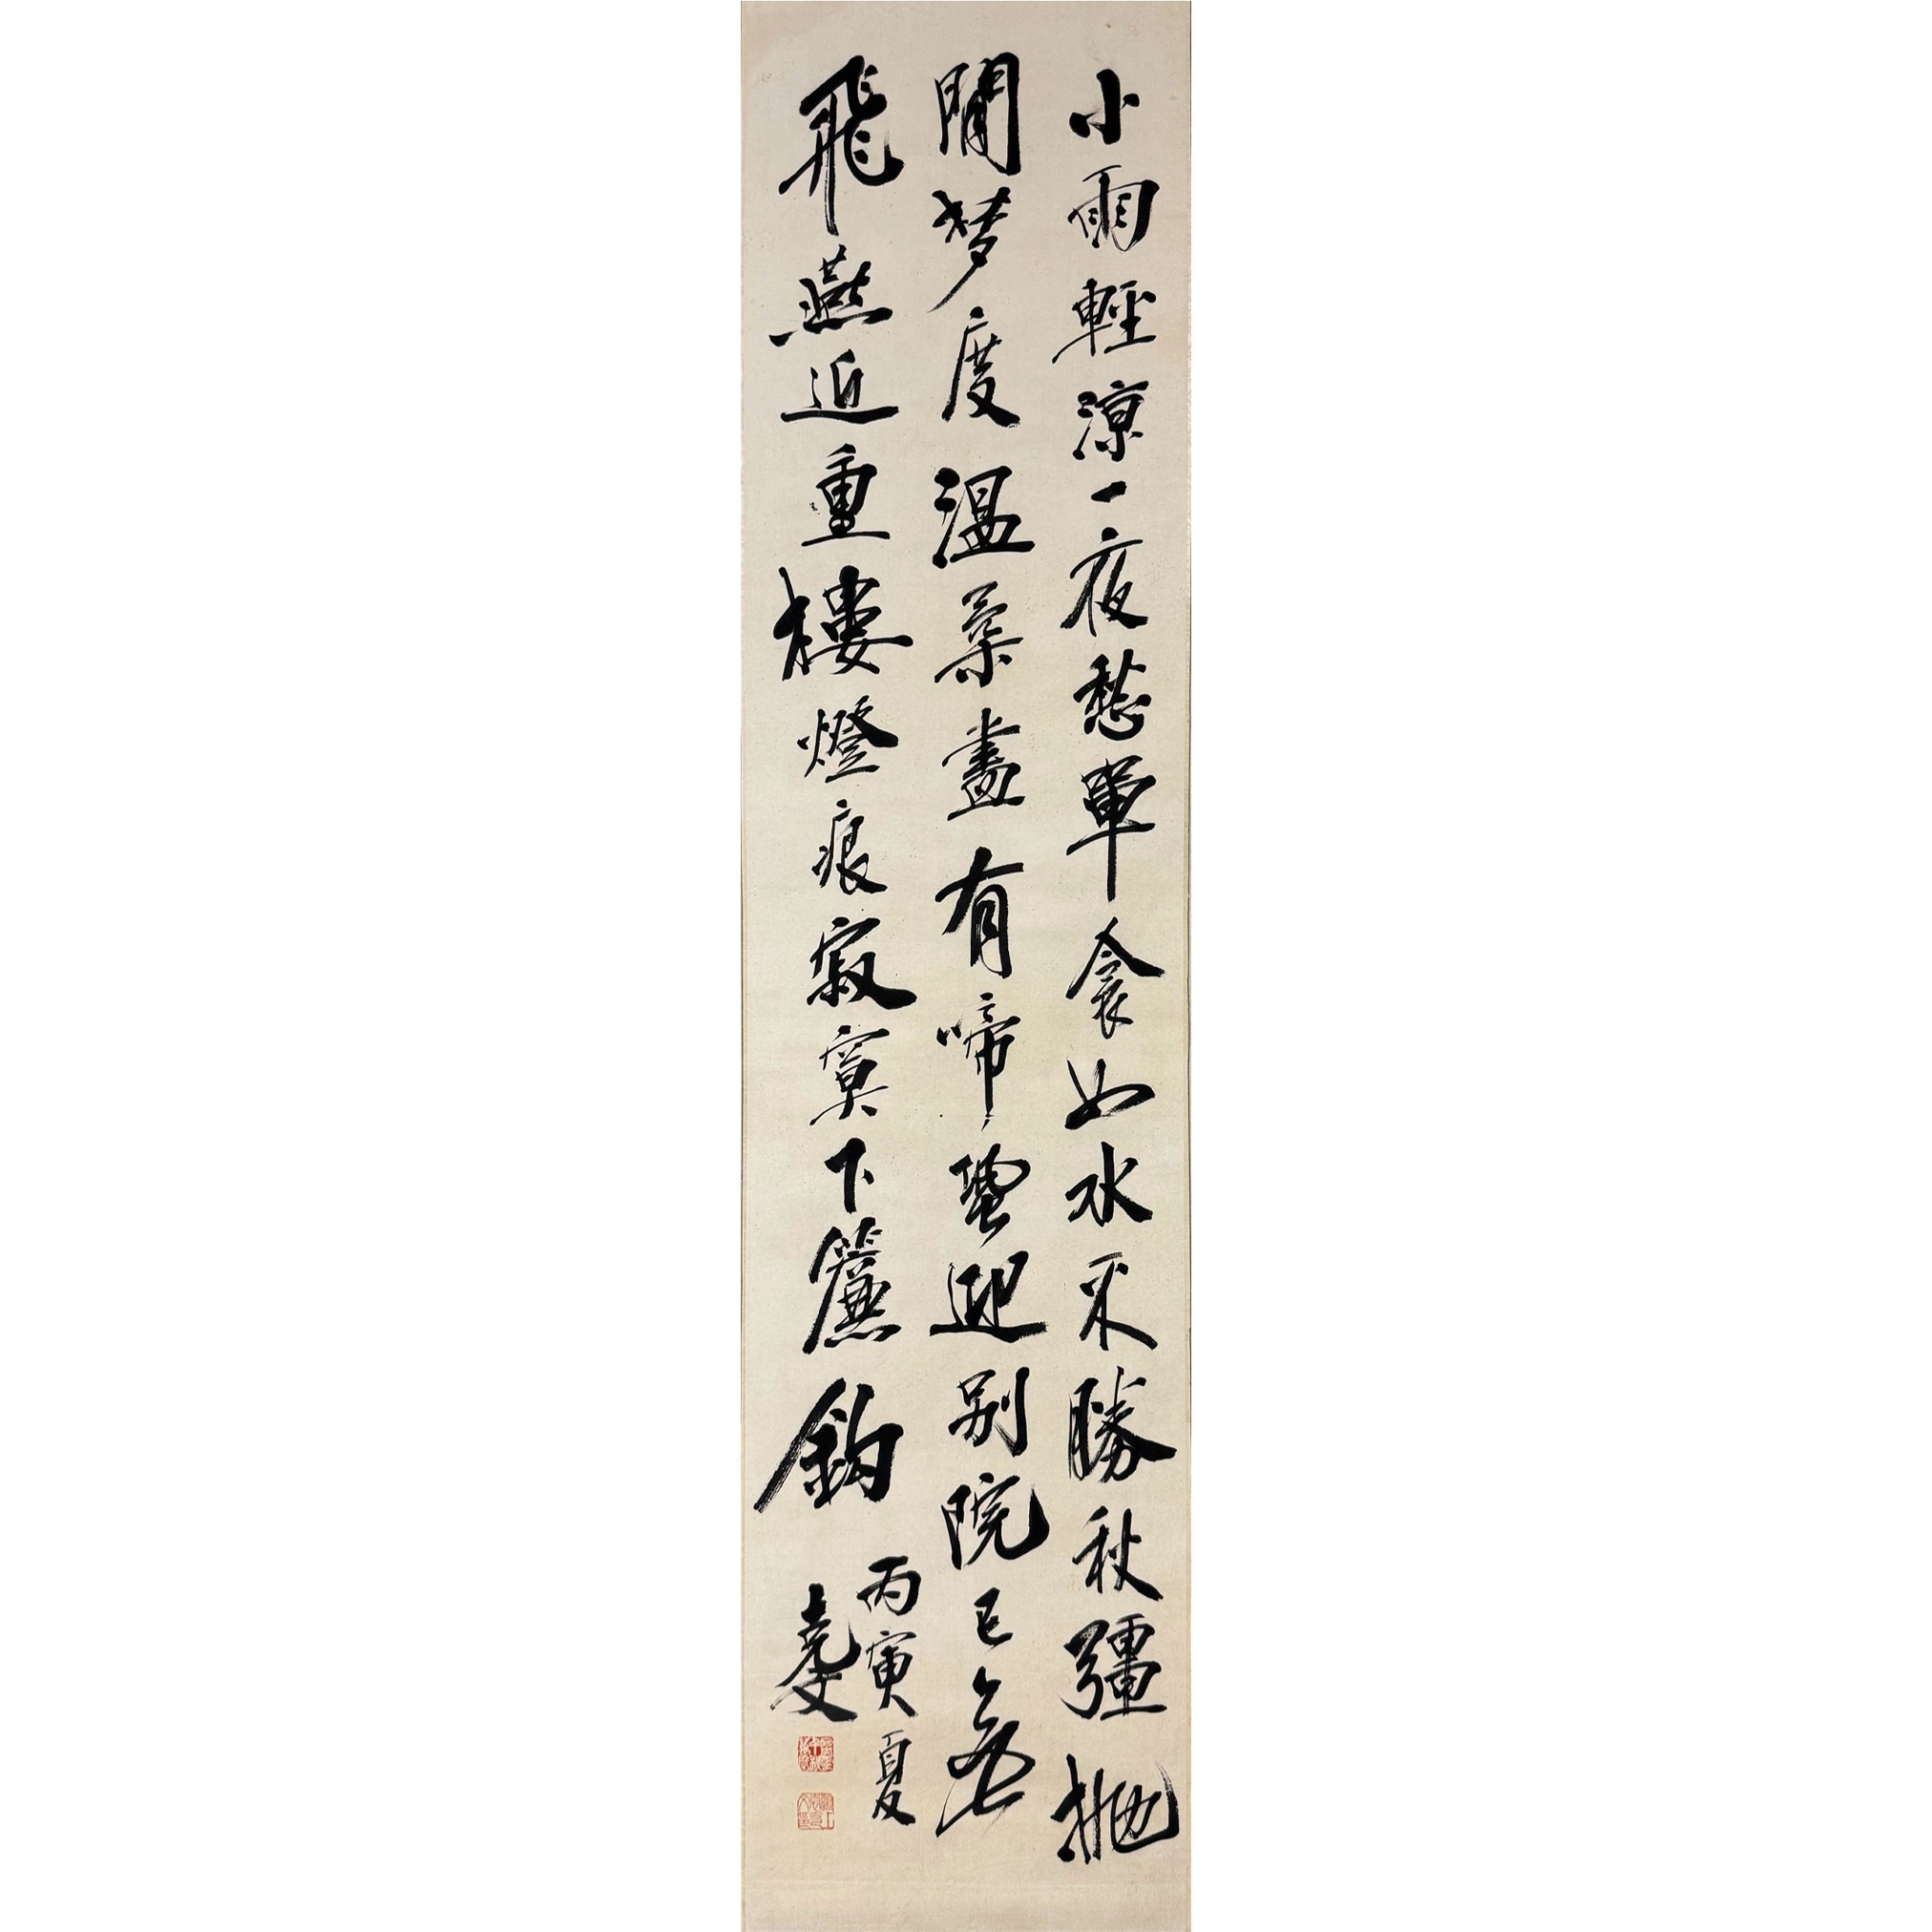 小雨輕涼一夜愁單衾如水不勝秋彊抛
閒梦度溫柔盡有啼蛩迎別院已無
飛燕近重樓燈痕寂寞下簾鉤
丙寅夏
克文